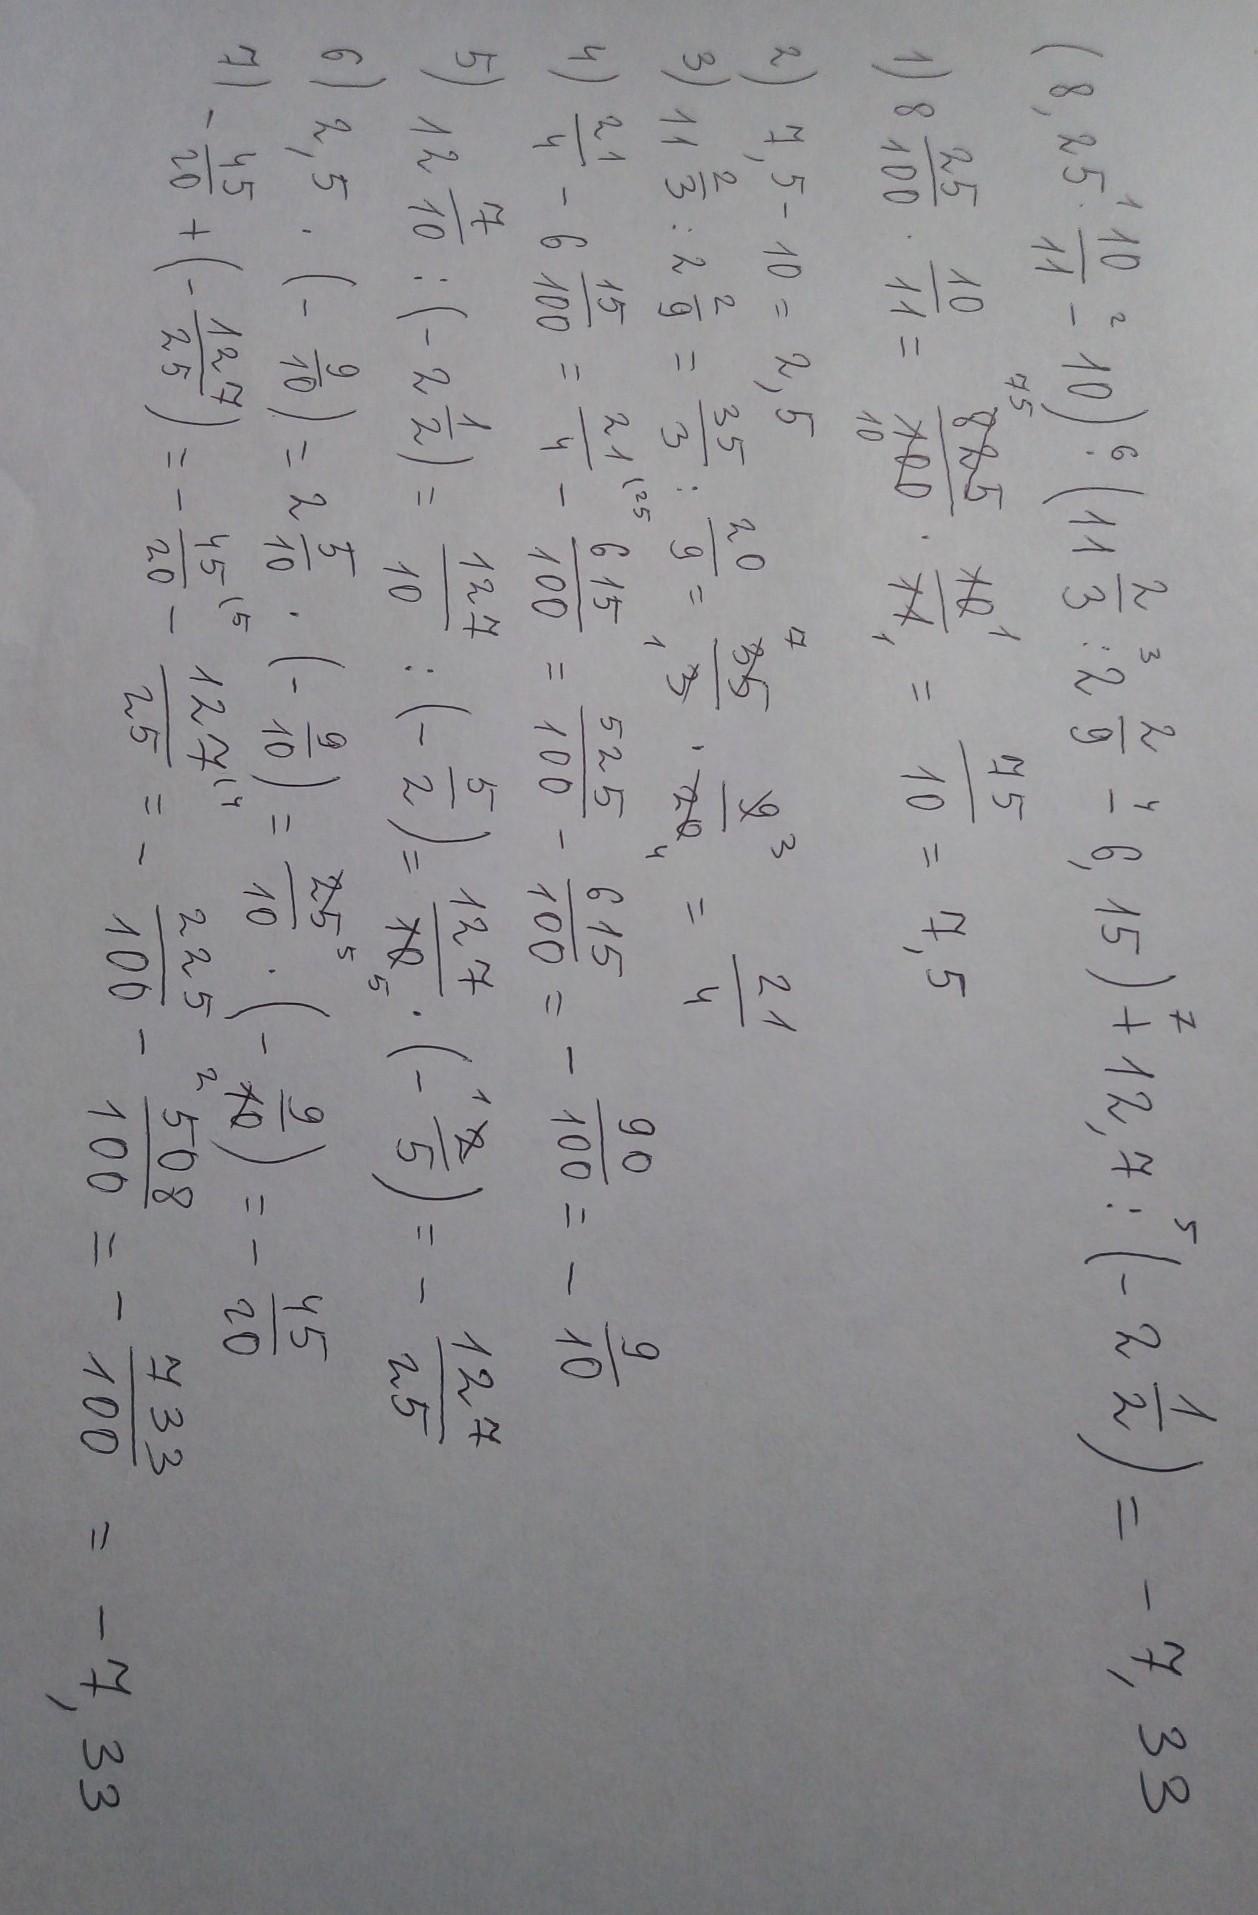 (8,25 · 10/11 - 10) : (11 2/3 : 2 2/9 - 6,15) + 12,7 : (-2 1/2) = -7,33
1) 8 25/100 · 10/11 = 825/100 · 10/11 = 75/10 = 7,5
2) 7,5 - 10 = 2,5
3) 11 2/3 : 2 2/9 = 35/3 : 20/9 = 35/3 · 9/20 = 21/4
4) 21/4 - 6 15/100 = 21/4 - 615/100 = 525/100 - 615/100 = - 90/100 = - 9/10
5) 12 7/10 : (-2 1/2) = 127/10 : (- 5/2) = 127/10 · (- 2/5) = - 127/25
6) 2,5 · (- 9/10) = 2 5/10 · (- 9/10) = 25/10 · (- 9/10) = - 45/20
7) - 45/20 + (- 127/25) = - 45/20 - 127/25 = - 225/100 - 508/100 = - 733/100 = -7,33